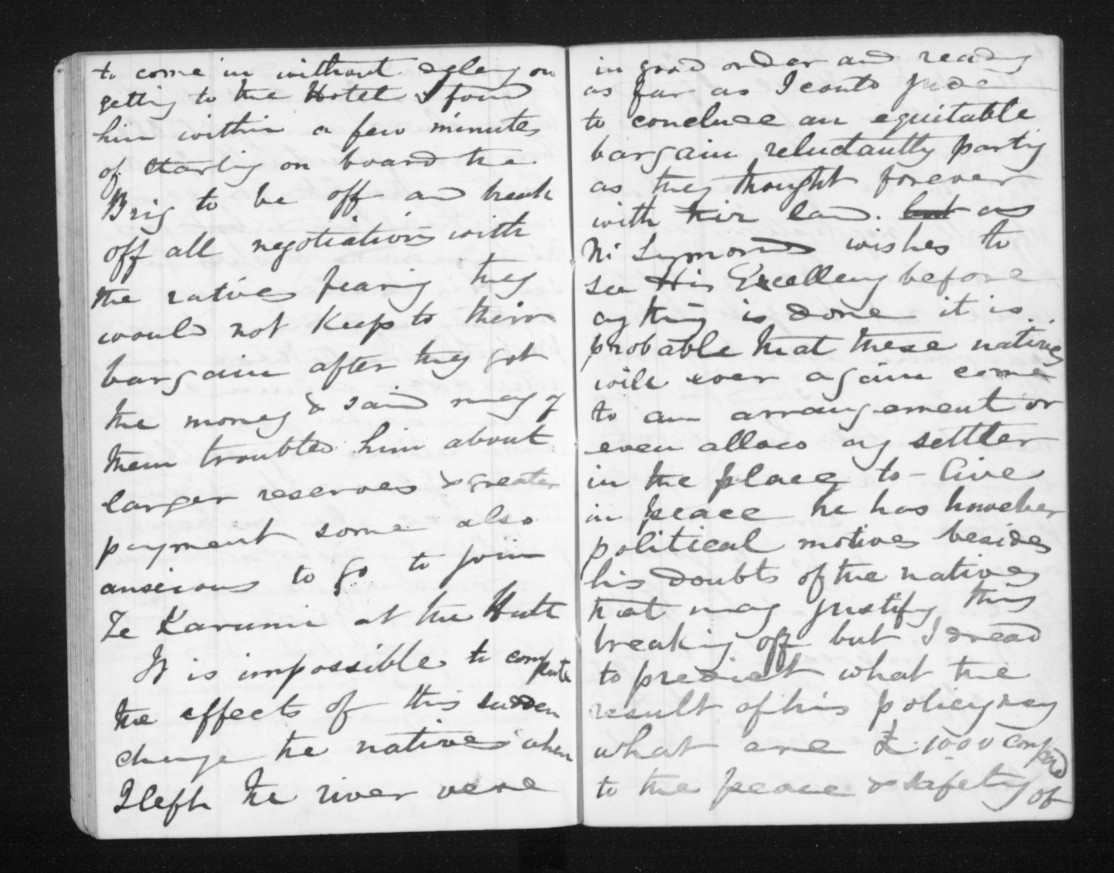 to come in without delay on
getting to the Hotel I found
him within a few minutes
of starting on board the
Brig to be off and break
off all negotiations with
the natives fearing they
would not keep to their
bargain after they got
the money & said many of
them troubled him about
larger reserves & greater
payment some also
anxious to go to join
Te Karumi at the Hutt
It is impossible to compute
the effects of this sudden
change the natives when
I left the river were
in good order and ready
as far as I could judge
to conclude an equitable
bargain reluctantly parting
as they thought forever
with their land. but as
Mr Symonds wishes to
see His Excellency before
anything is done it is
probable that these natives
will ever again come
to an arrangement or
even allow any settler
in the place to live
in peace he has however
political motives besides
his doubts of the natives
that may justify this
breaking off but I dread
to predict what the
result of his policy may
what are £1000 compared
to the peace & safety of